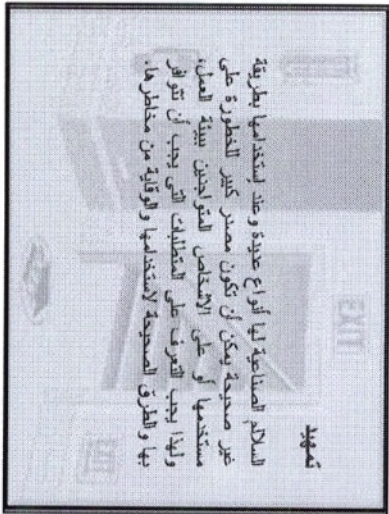 تمهيد
السلالم الصناعية لها أنواع عديدة وعند إستخدامها بطريقة
غير صحيحة يمكن أن تكون مصدر كبير للخطورة على
مستخدميها أو على الأشخاص المتواجدين ببيئة العمل،
ولهذا يجب التعرف على المتطلبات التى يجب أن تتوافر
بها والطرق الصحيحة لاستخدامها والوقاية من مخاطرها.
EXIT